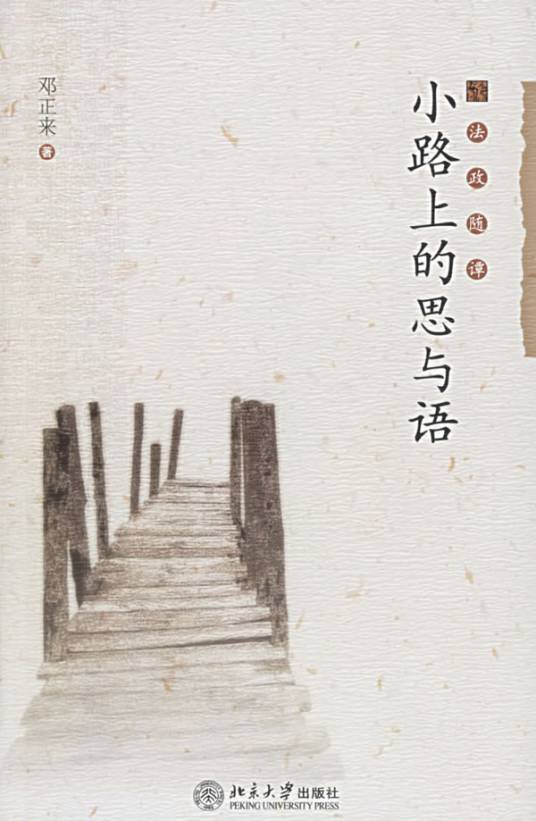 法政随谭
小路上的思与语
邓正来 著
北京大学出版社
PEKING UNIVERSITY PRESS